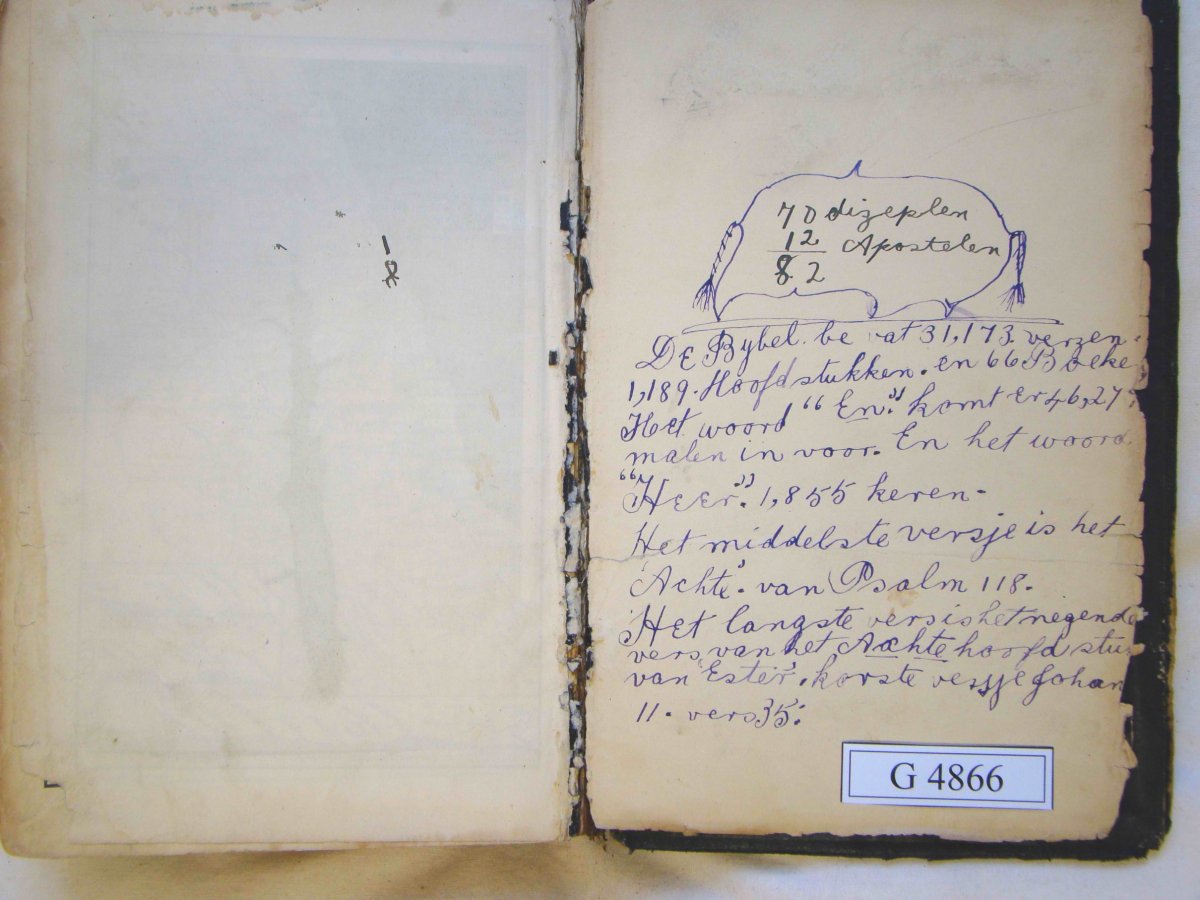 70 dizeplen
12 Apostelen
82
De Bybel. be vat 31,173. verzen.
1,189. Hoofdstukken. en 66 Boeke
Het woord "En." komt er 46,27
malen in voor. En het woord
"Heer." 1,855 keren.
Het middelste versje is het
Achte. van Psalm 118.
Het langste vers is het negende
vers van het Achte hoofd stu
van "Ester". korste versje Johan
11. vers 35.
G 4866